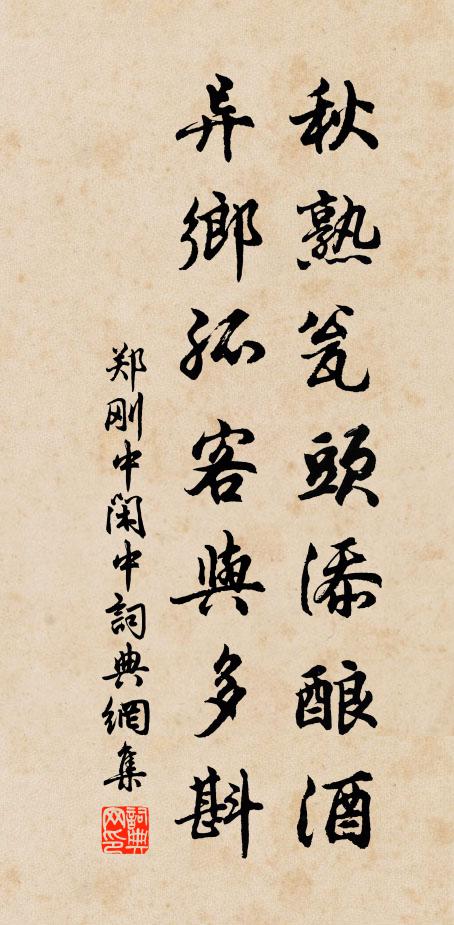 秋熟瓮頭添酿酒
异鄉孤客與多斟
郑刚中闲中詞典網集
詞典网印